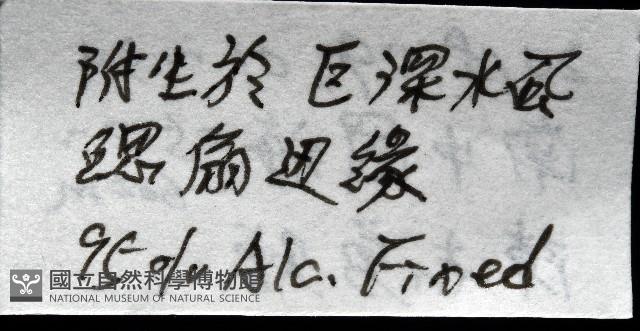 附生於巨深水區
環扇边緣
95% Alc. Fixed
國立自然科學博物館
NATIONAL MUSEUM OF NATURAL SCIENCE